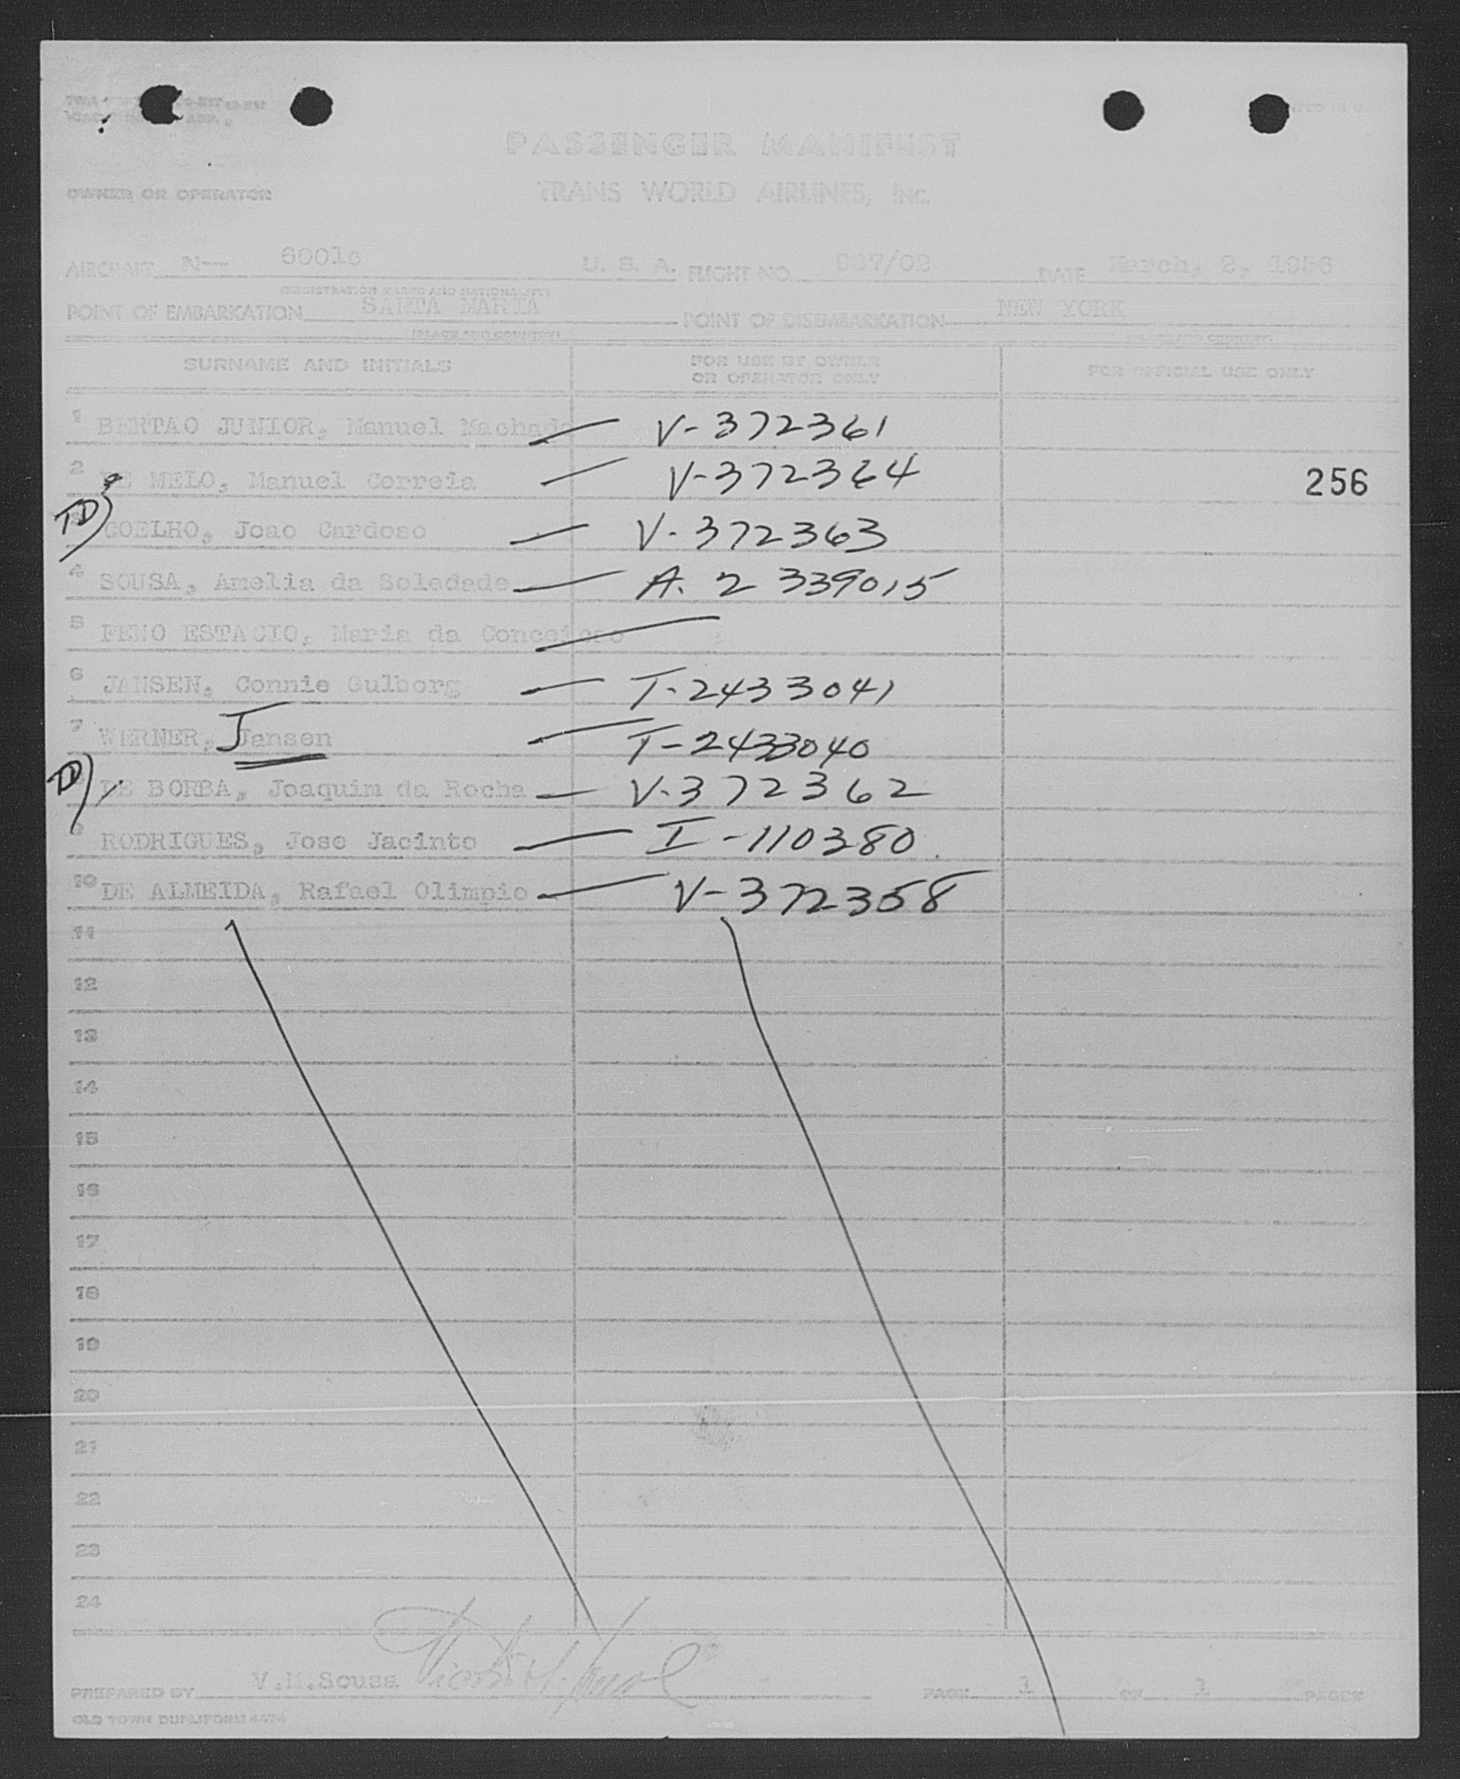 PASSENGER MANIFEST
OWNER OR OPERATOR TRANS WORLD AIRLINES, Inc.
AIRCRAFT N- 6001c U. S. A. FLIGHT NO. 967/02 DATE March, 2, 1956
(REGISTRATION MARKS AND NATIONALITY)
POINT OF EMBARKATION SANTA MARIA POINT OF DISEMBARKATION NEW YORK
(PLACE AND COUNTRY) (PLACE AND COUNTRY)
SURNAME AND INITIALS FOR USE BY OWNER OR OPERATOR ONLY FOR OFFICIAL USE ONLY
1 BERTAO JUNIOR, Manuel Machado — V-372361
2 DE MELO, Manuel Correia — V-372364 256
TD) 3 COELHO, Joao Cardoso — V-372363
4 SOUSA, Amelia da Soledade — A. 2 339015
5 PENO ESTACIO, Maria da Conceicao —
6 JANSEN, Connie Gulborg — T-2433041
7 WERNER, Jansen — T-2433040
TD) DE BORBA, Joaquim da Rocha — V-372362
9 RODRIGUES, Jose Jacinto — I-110380
10 DE ALMEIDA, Rafael Olimpio — V-372358
11
12
13
14
15
16
17
18
19
20
21
22
23
24
PREPARED BY V.M.Sousa PAGE 1 OF 1 PAGES
OLD TOWN DUPLIFORM 4474